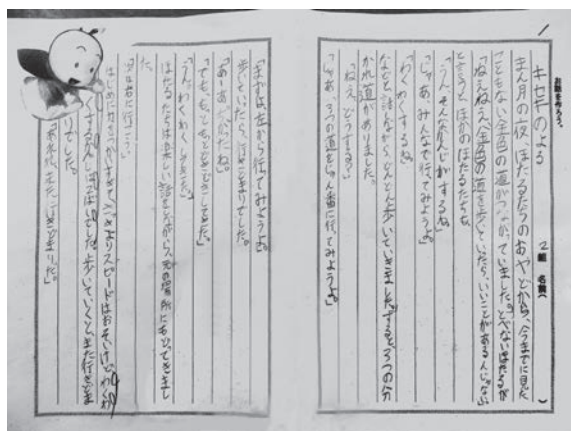 お話を作ろう。
2組 名前( )
キセキのよる
まん月の夜、ほたるたちのおやどから、今までに見た
こともない金色の道がつながっていました。とべないほたるが
「ねえねえ、金色の道を歩いていたら、いいことがあるんじゃない」
と言うと、ほかのほたるたちも
「うん、そんなかんじがするね。」
「じゃあ、みんなで行ってみようよ。」
「わくわくするね。」
などと、話しながらどんどん歩いていきました。すると、3つの分
かれ道がありました。
「ねえ、どうする。」
「じゃあ、3つの道をじゅん番に行ってみようよ。」
「まずは左から行ってみようよ。」
歩いていたら、行きどまりでした。
「あーあ、だったね。」
「でも、もっともっとどきどきしてきた。」
「うん、わくわくしてきた。」
ほたるたちは楽しい話をしながら、元の場所にもどってきまし
た。
「次は右に行こう。」
はじめに行き すぎて、 よりスピードはおそいけど、わくわ
くする気 でした。歩いていくと、また行きどま
りでした。
「あれれ、また、行きどまりだ。」